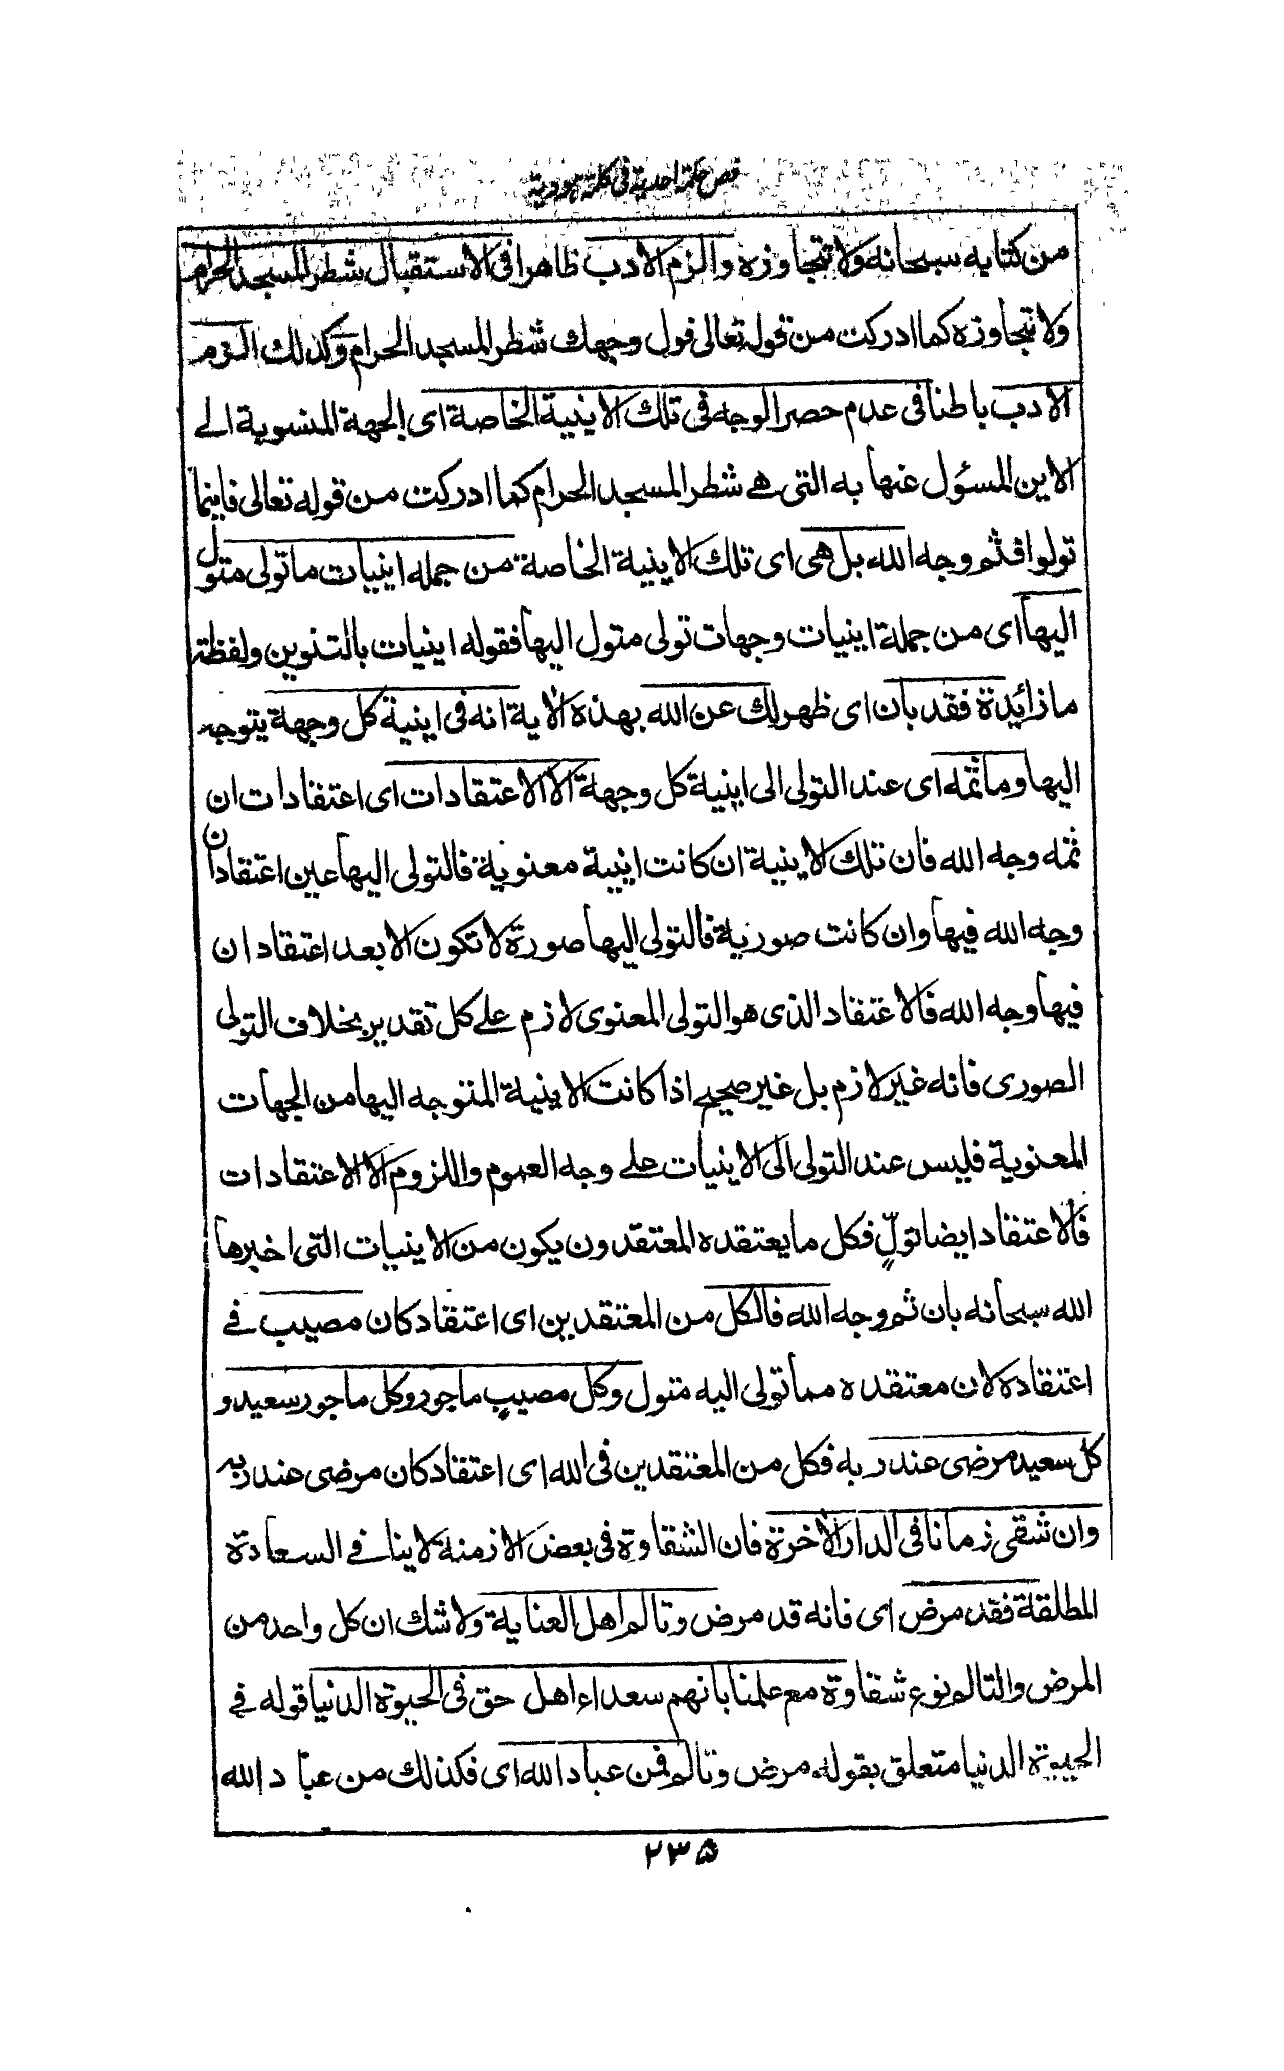 فص حكمة احدية في كلمة هودية
من كتابه سبحانه ولا تتجاوزه والزم الادب ظاهرا في الاستقبال شطر المسجد الحرام
ولا تتجاوزه كما ادركت من قوله تعالى فول وجهك شطر المسجد الحرام وكذلك الزم
الادب باطنا في عدم حصر الوجه في تلك الاينية الخاصة اى الجهة المنسوبة الى
الاين المسؤل عنها به التى هے شطر المسجد الحرام كما ادركت من قوله تعالى فاينما
تولوا فثم وجه الله بل هى اى تلك الاينية الخاصة من جملة اينيات ما تولى متول
اليها اى من جملة اينيات وجهات تولى متول اليها فقوله اينيات بالتنوين ولفظة
ما زائدة فقد بان اى ظهر لك عن الله بهذه الاية انه فى اينية كل وجهة يتوجه
اليها وما ثمه اى عند التولى الى اينية كل وجهة الا الاعتقادات اى اعتقادات ان
ثمه وجه الله فان تلك الاينية ان كانت اينية معنوية فالتولى اليها عين اعتقاد ان
وجه الله فيها وان كانت صورية فالتولى اليها صورة لا تكون الا بعد اعتقاد ان
فيها وجه الله فالاعتقاد الذى هو التولى المعنوى لازم علے كل تقدير بخلاف التولى
الصورى فانه غير لازم بل غير صحيح اذا كانت الاينية المتوجه اليها من الجهات
المعنوية فليس عند التولى الى الاينيات علے وجه العموم واللزوم الا الاعتقادات
فالاعتقاد ايضا تولٍّ فكل ما يعتقده المعتقدون يكون من الاينيات التى اخبرها
الله سبحانه بان ثم وجه الله فالكل من المعتقدين اى اعتقاد كان مصيب فے
اعتقاده لان معتقده مما تولى اليه متول وكل مصيبٍ ماجور وكل ماجور سعيد و
كل سعيد مرضى عند ربه فكل من المعتقدين فى الله اى اعتقاد كان مرضى عند ربه
وان شقى زمانا فى الدار الأخرة فان الشقاوة فى بعض الازمنة لا ينافے السعادة
المطلقة فقد مرض اى فانه قد مرض وتالم اهل العناية ولا شك ان كل واحد من
المرض والتالم نوع شقاوة مع علمنا بانهم سعداء اهل حق فى الحيوة الدنيا قوله فے
الحيوة الدنيا متعلق بقوله مرض وتالم فمن عباد الله اى فكذلك من عبّاد الله
٢٣٥